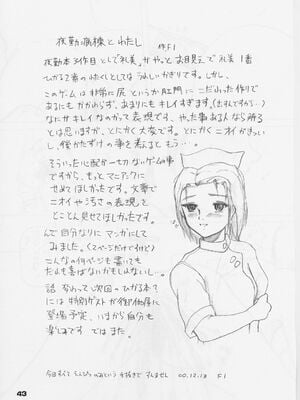 夜勤病棟とわたし
作F1
夜勤本3作目としてで礼美。かやっとお目見えで礼美1番
ひかる2番のわたくしとしてはうれしいかぎりです。しかし、
このゲームは非常に尻というか肛門にこだわった作りで
あるにもかかわらず、あまりにもキレイすぎます。(出すんですか…)
なにがキレイなのかって表現です、やった事ある人なら解る
とは思いますが、とにかく大変です。とにかくニオイがきつい
し、後かたずけの事を考えると もう…。
そういった心配が一切ないゲームの事
ですから、もっとマニアックに
せめてほしかったです。文章で
ニオイや汚さの表現を
とことん見せてほしかったです。
んで自分なりにマンガにして
みました。(2ページだけですけど)
こんなの何ページも書いても
だれも喜ばないかもしれないし…。
話 かわって次回のひかる本?
には特別ゲストが御体様に
登場予定、いまから自分も
楽しみです ではまた。
今回すべてえんぴつのみという手抜きで すんません 00.12.13 F1
43